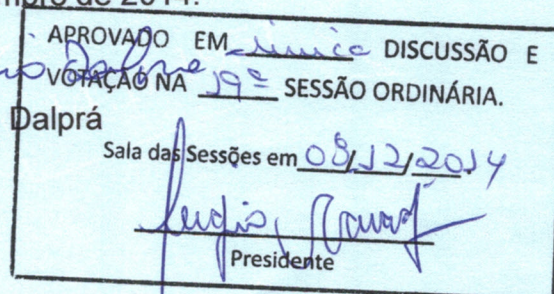 mbro de 2014.
APROVADO EM única DISCUSSÃO E
VOTAÇÃO NA 19ª SESSÃO ORDINÁRIA.
Dalprá
Sala das Sessões em 08/12/2014
Presidente